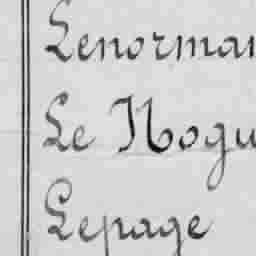 Lenorman
Le Nogu
Lepage